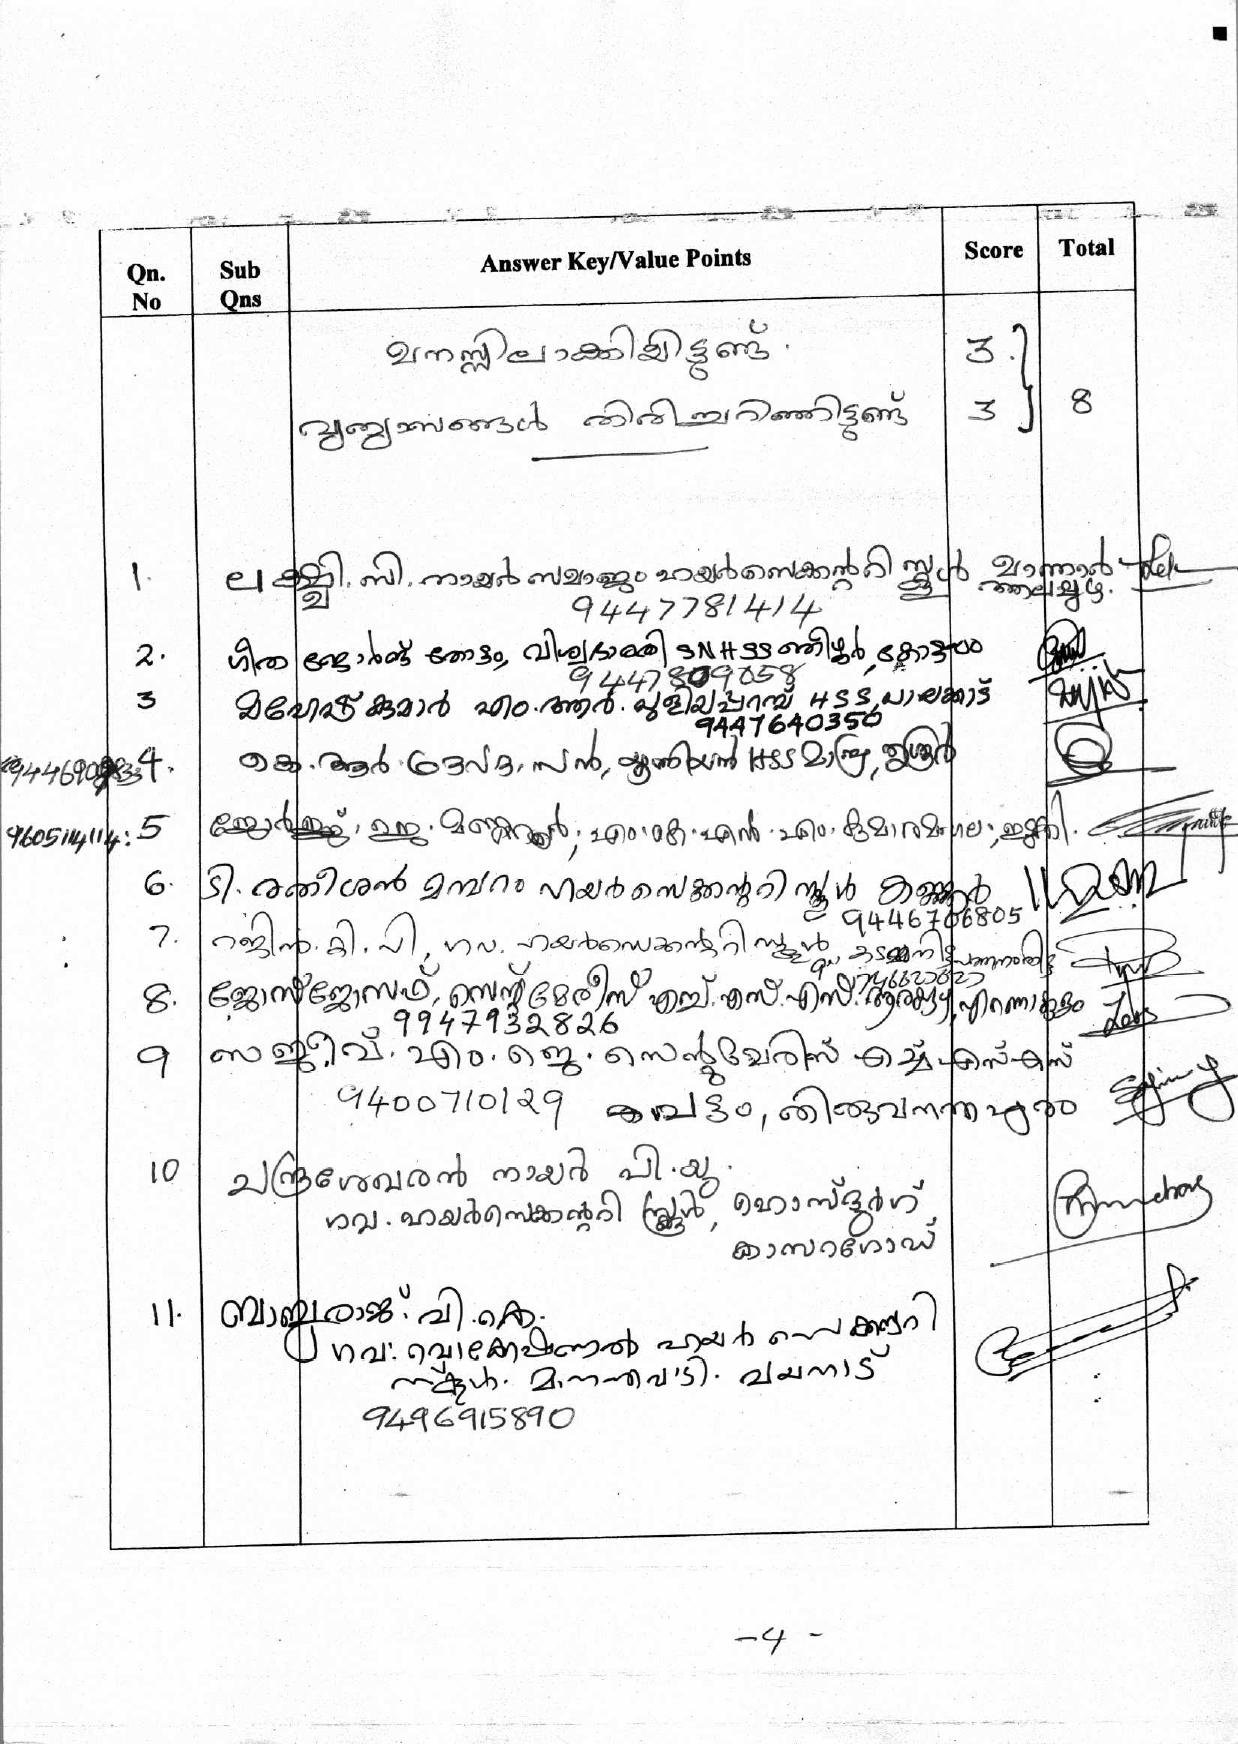 Qn. No Sub Qns Answer Key/Value Points Score Total
മനസ്സിലാക്കിയിട്ടുണ്ട്. 3
വ്യത്യാസങ്ങൾ തിരിച്ചറിഞ്ഞിട്ടുണ്ട് 3 8
1. ലക്ഷ്മി. സി. നായർ സമാജം ഹയർസെക്കന്ററി സ്കൂൾ മാന്നാർ
ആലപ്പുഴ.
9447781414
2. ഗീത ജോർജ്ജ് തോട്ടം, വിശ്വഭാരതി SNHSS ഞീഴൂർ, കോട്ടയം
9447809058
3 മഹേഷ്കുമാർ എം.ആർ. പുളിയപ്പറമ്പ് HSS, പാലക്കാട്
9447640350
4. കെ.ആർ ദേവദാസൻ, യൂണിയൻ HSS മാമ്പ്ര, തൃശൂർ
9605114114: 5 ജോർജ്ജ്. എം.കെ.എൻ.എം. കുമാരമംഗലം, ഇടുക്കി.
6. ടി. രതീശൻ മമ്പറം ഹയർസെക്കന്ററി സ്കൂൾ കണ്ണൂർ
9446706805
7. റജിൻ. കി. പി, ഗവ. ഹയർസെക്കന്ററി സ്കൂൾ, കടമ്മനിട്ട പത്തനംതിട്ട
8. ജോസ് ജോസഫ്, സെന്റ് മേരീസ് എച്ച്.എസ്.എസ്. ആരക്കുഴ, എറണാകുളം
9947932826
9 സജീവ്. എം. ജെ. സെന്റ് മേരിസ് എച്ച് എസ് എസ്
9400710129 പട്ടം, തിരുവനന്തപുരം
10 ചന്ദ്രശേഖരൻ നായർ പി.യു.
ഗവ. ഹയർസെക്കന്ററി സ്കൂൾ, ഹൊസ്ദുർഗ്,
കാസറഗോഡ്
11. ബാബുരാജ്. വി.കെ.
ഗവ. വൊക്കേഷണൽ ഹയർ സെക്കണ്ടറി
സ്കൂൾ. മാനന്തവാടി. വയനാട്
9496915890
-4-